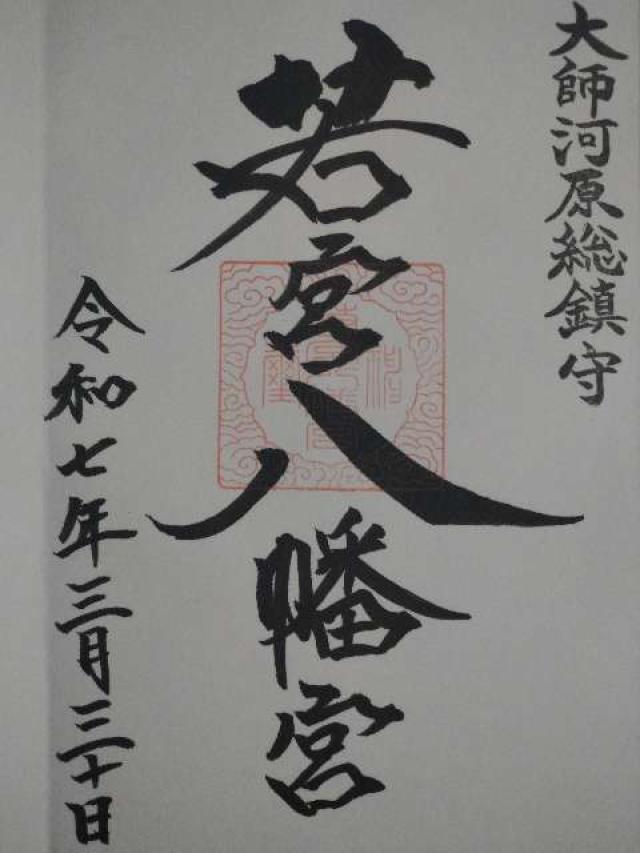 大師河原総鎮守
若宮八幡宮
令和七年三月三十日